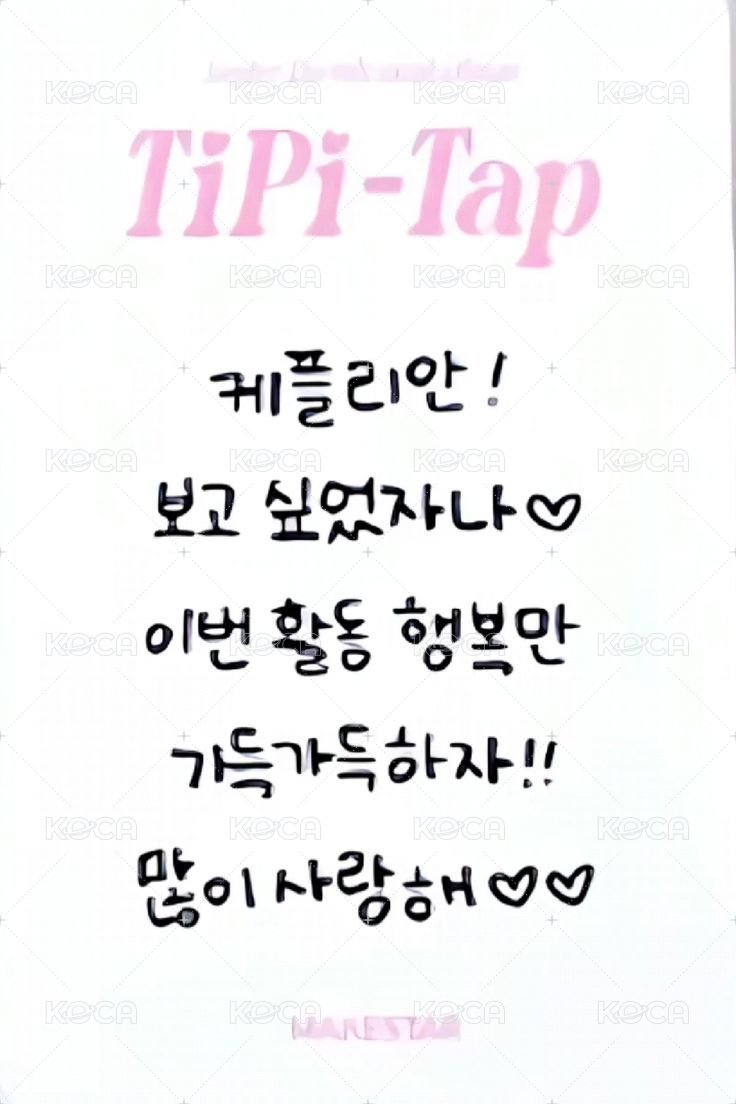 TiPi-Tap
케플리안!
보고 싶었자나♡
이번 활동 행복만
가득가득하자!!
많이 사랑해♡♡
KOCA